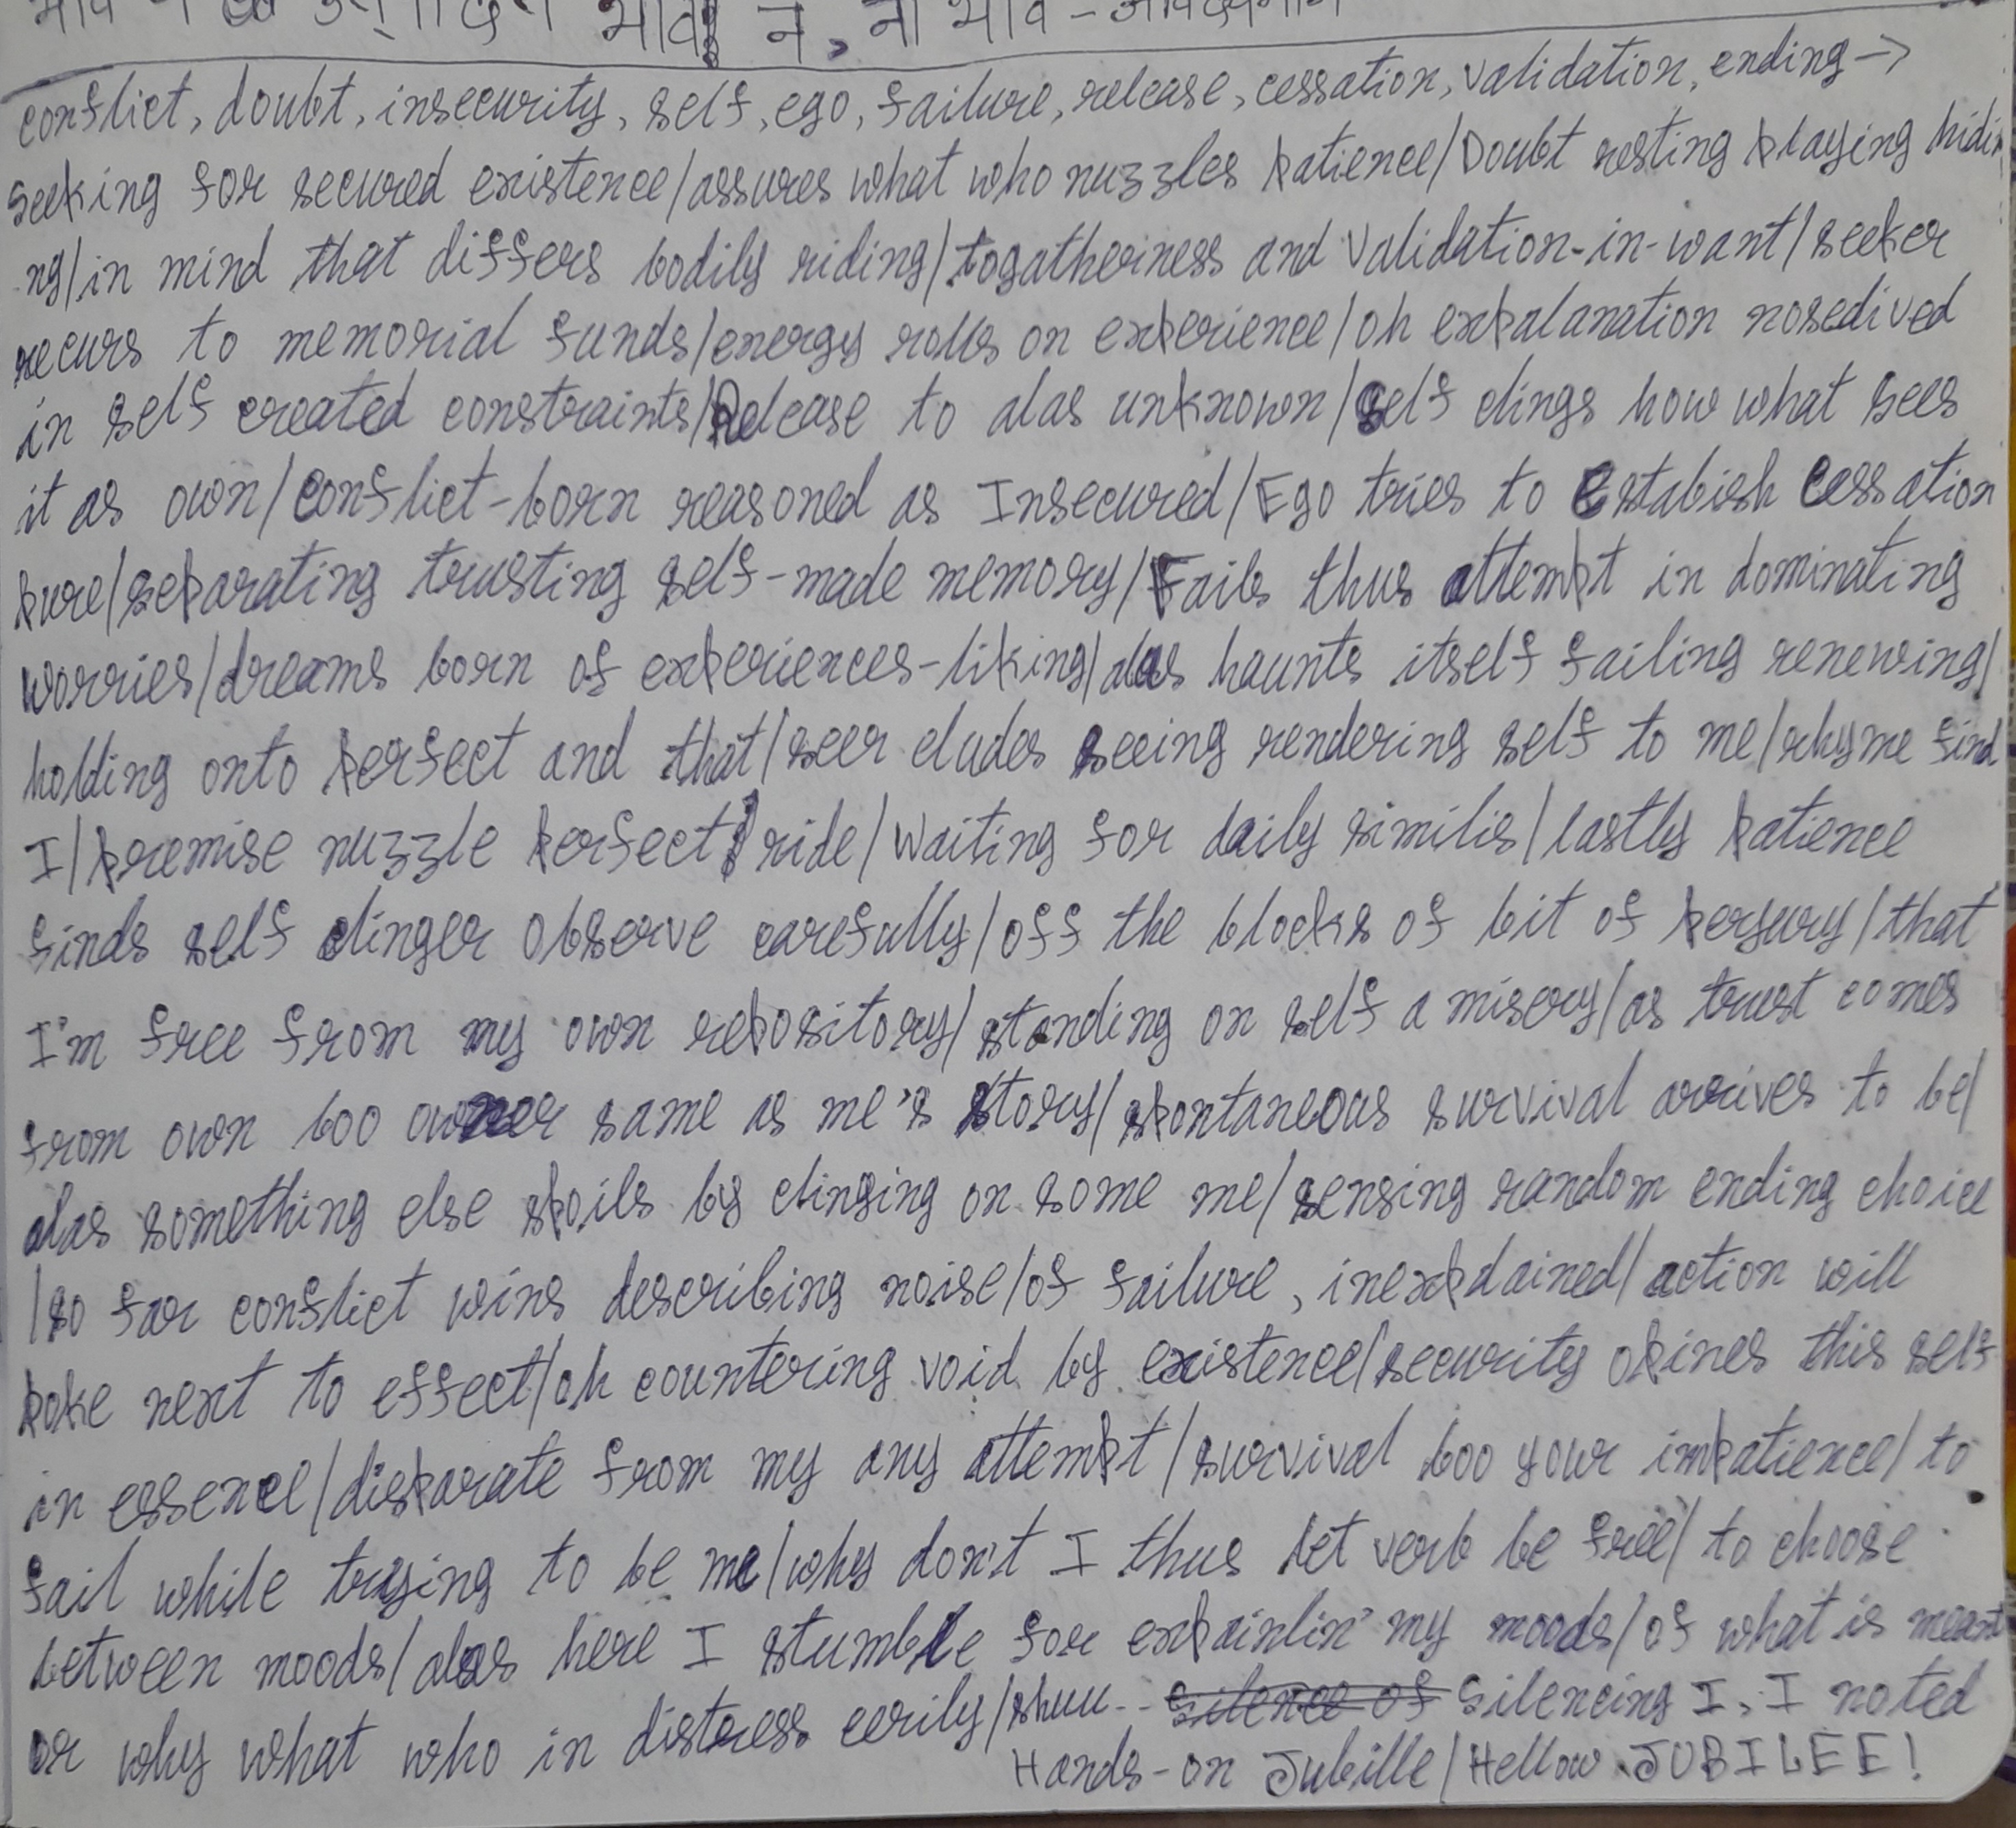 भाव न, ना भाव -
conflict, doubt, insecurity, self, ego, failure, release, cessation, validation, ending →
seeking for secured existence/assures what who nuzzles patience/Doubt resting playing hidi
ng/in mind that differs bodily riding/togatheriness and validation-in-want/seeker
recurs to memorial funds/energy rolls on experience/oh expalanation nosedived
in self created constraints/Release to alas unknown/self clings how what sees
it as own/conflict-born reasoned as Insecured/Ego tries to Estabish cessation
pure/separating trusting self-made memory/Fails thus attempt in dominating
worries/dreams born of experiences-liking/alas haunts itself failing renewing/
holding onto perfect and that/seer eludes seeing rendering self to me/rhyme find
I/premise nuzzle perfect/ride/Waiting for daily similis/lastly patience
finds self clinger observe carefully/off the blocks of bit of perjury/that
I'm free from my own repository/standing on self a misery/as trust comes
from own boo owner same as me's story/spontaneous survival arrives to be/
alas something else spoils by clinging on some me/sensing random ending choice
/so far conflict wins describing noise/of failure, inexplained/action will
poke next to effect/oh countering void by existence/security opines this self
in essence/disparate from my any attempt/survival boo your impatience/to
fail while trying to be me/why don't I thus let verb be free/to choose
between moods/alas here I stumble for expainlin' my moods/of what is meant
or why what who in distress eerily/shuu.. silence of silencing I, I noted
Hands-on Jubille/Hellow JUBILEE!